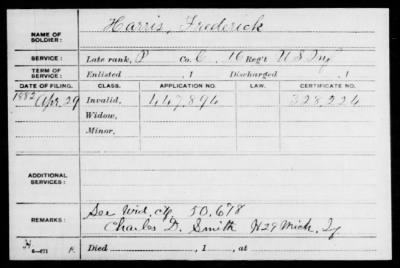 Harris, Frederick
NAME OF SOLDIER:
SERVICE: Late rank, P Co. C, 16 Reg't U S Inf
TERM OF SERVICE: Enlisted , 1 Discharged , 1
DATE OF FILING. CLASS. APPLICATION NO. LAW. CERTIFICATE NO.
1882 Apr. 29 Invalid, 447,894 328,224
Widow,
Minor,
ADDITIONAL SERVICES:
REMARKS: See Wid. ctf. 50,678
Charles D. Smith H 29 Mich. If
Died , 1 , at